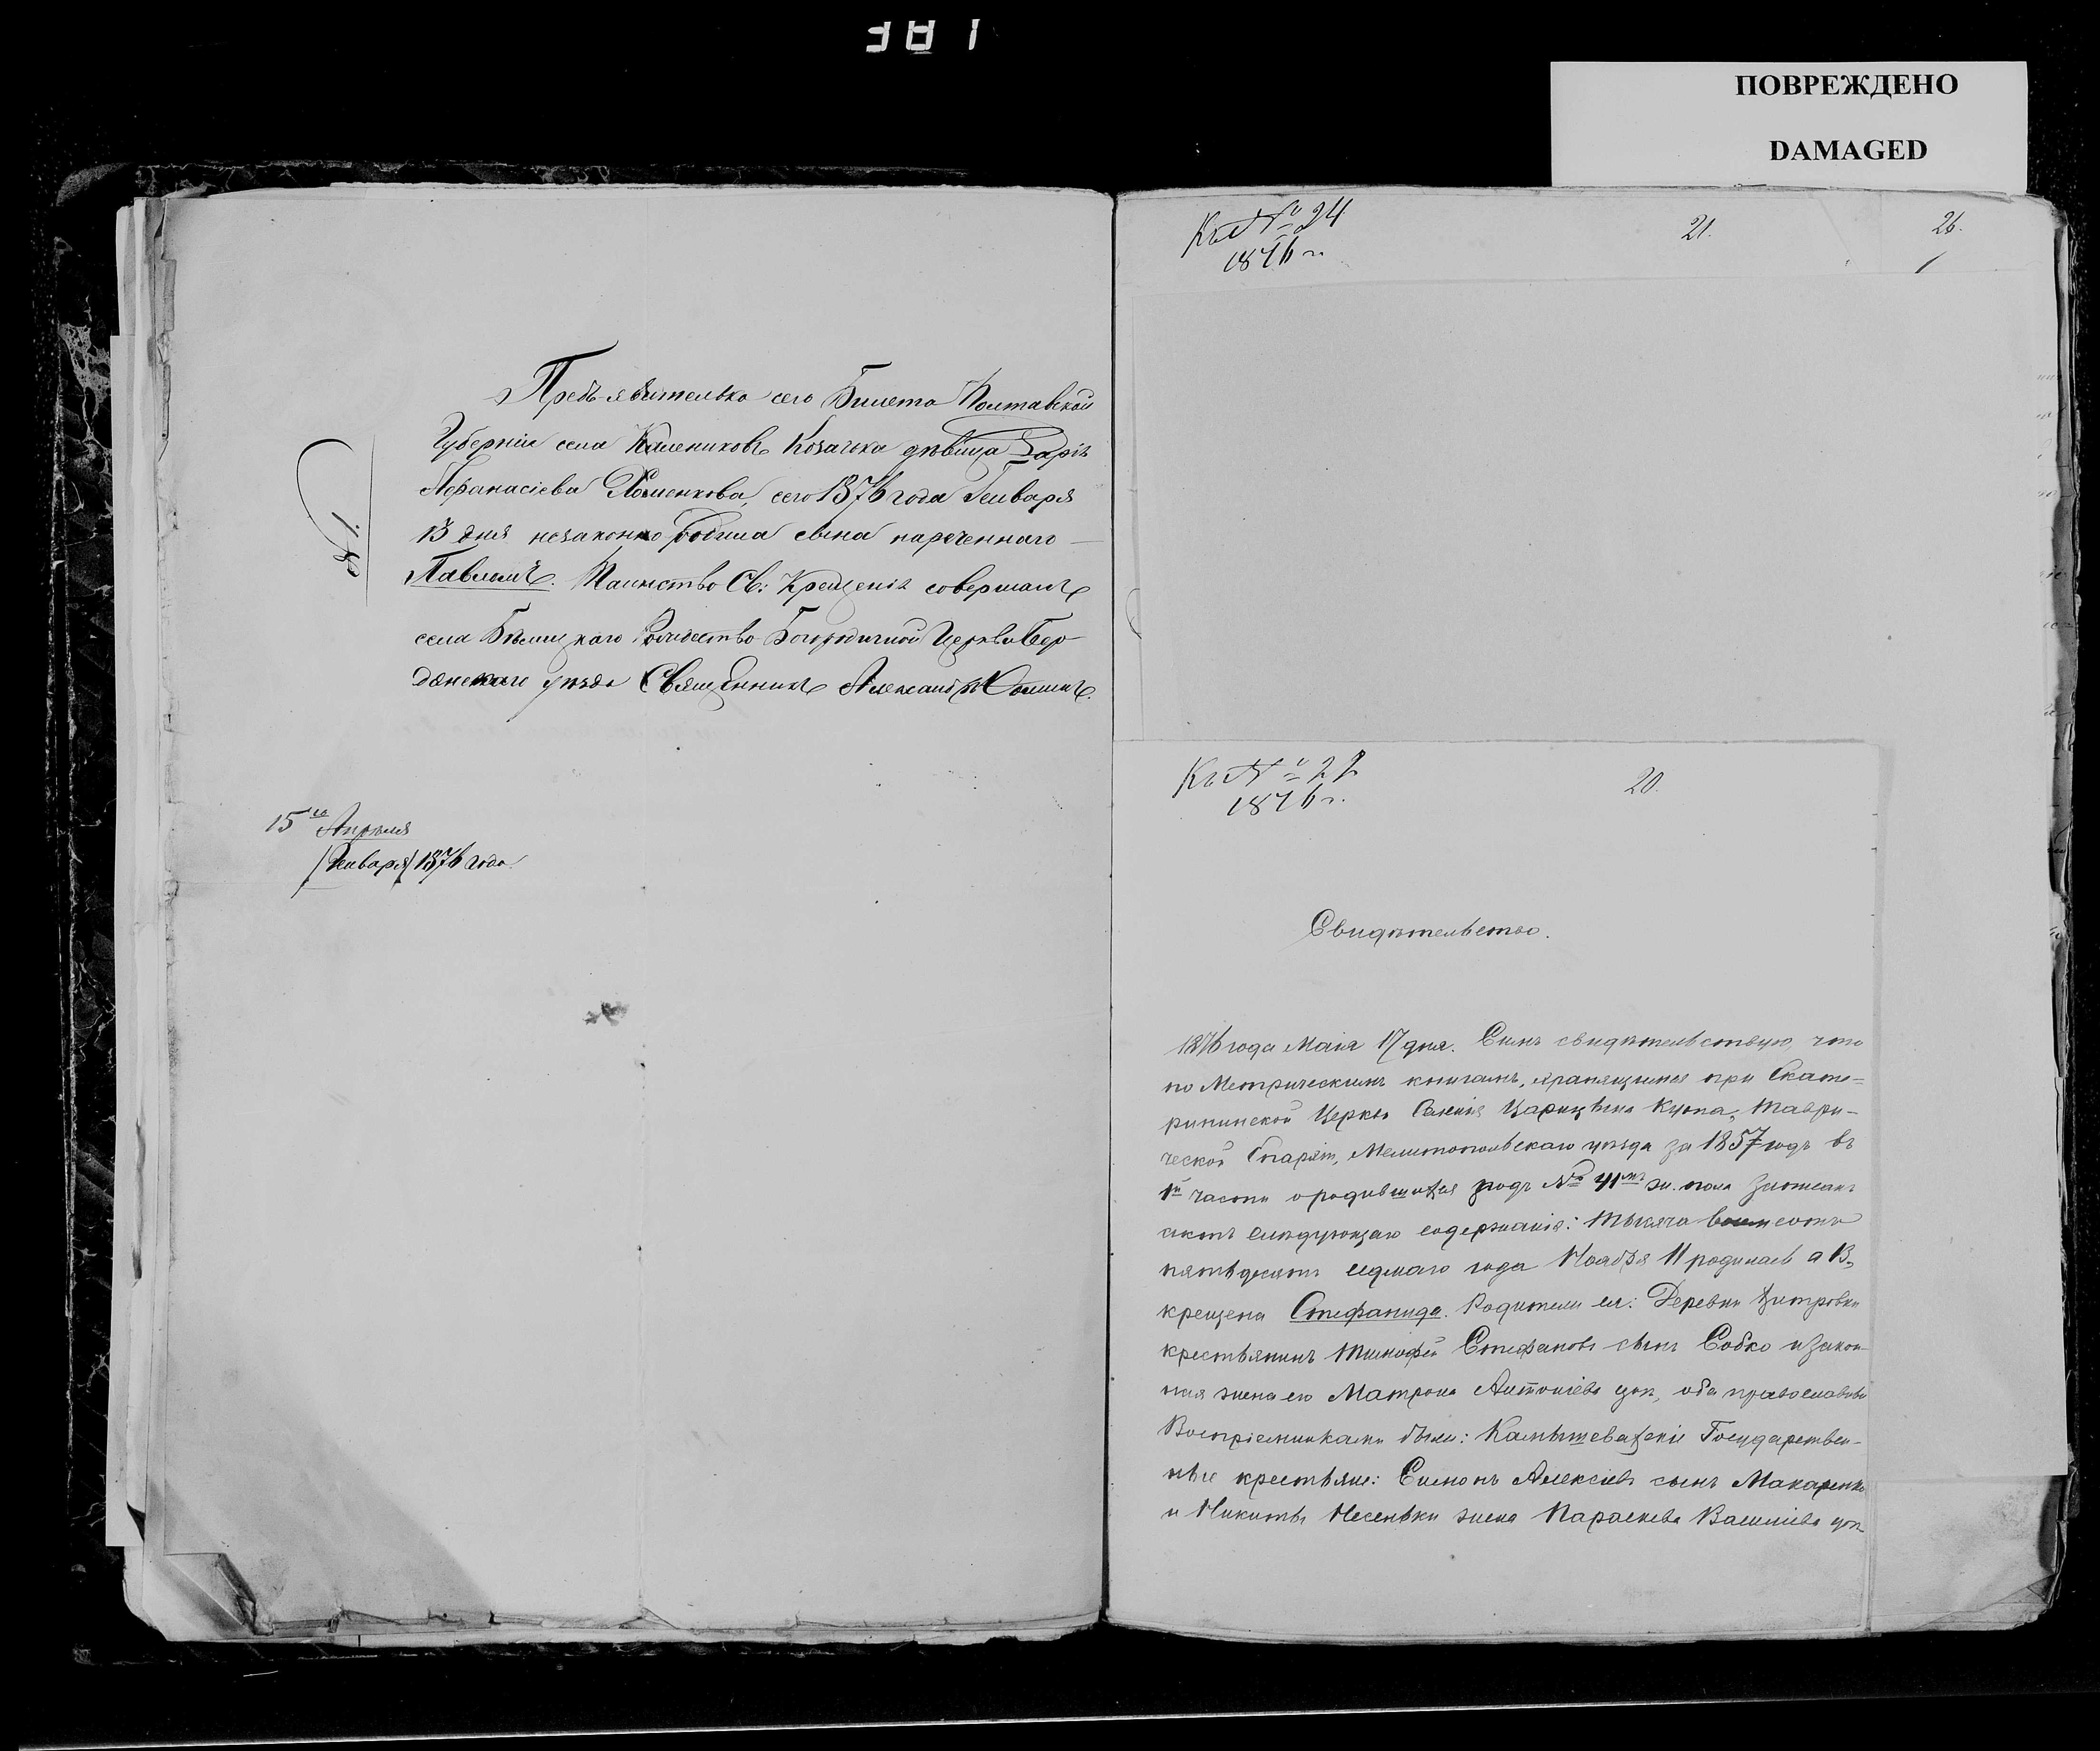 381
ПОВРЕЖДЕНО
DAMAGED
Предъявителька сего Билета Полтавской
Губерніи села Калениковъ Козачка дѣвица Дарія
Афанасіева Хоменкова, сего 1876 года Генваря
13 дня незаконно родила сына нареченнаго
Павломъ. Таинство Св: Крещенія совершалъ
села Бѣлицкаго Рождество Богородичной Церкви Бер-
дянскаго уѣзда Священникъ Александръ
15го Апрѣля
Генваря 1876 года.
Къ № 24
1876 г.
21.
26.
Къ № 22
1876 г.
20.
Свидѣтельство.
1876 года Маія 17 дня. Симъ свидѣтельствую, что
по Метрическимъ книгамъ, хранящимся при Екате-
рининской Церкви Селенія Царицына Кута, Таври-
ческой Епархіи, Мелитопольскаго уѣзда за 1857 годъ въ
1й части о родившихся подъ № 41мъ ж. пола записанъ
актъ слѣдующаго содержанія: Тысяча восемьсотъ
пятьдесятъ седмаго года Ноября 11 родилась а 13,
крещена Стефанида. Родители ея: Деревни
крестьянинъ Тимофей Стефановъ сынъ Собко и закон-
ная жена его Матрона Антоніева доч, оба православные
Воспріемниками были: Камышеватскіе Государствен-
ные крестьяне: Симонъ Алексіевъ сынъ Макаренко
и Никиты Несеньки жена Параскева Василіева доч.